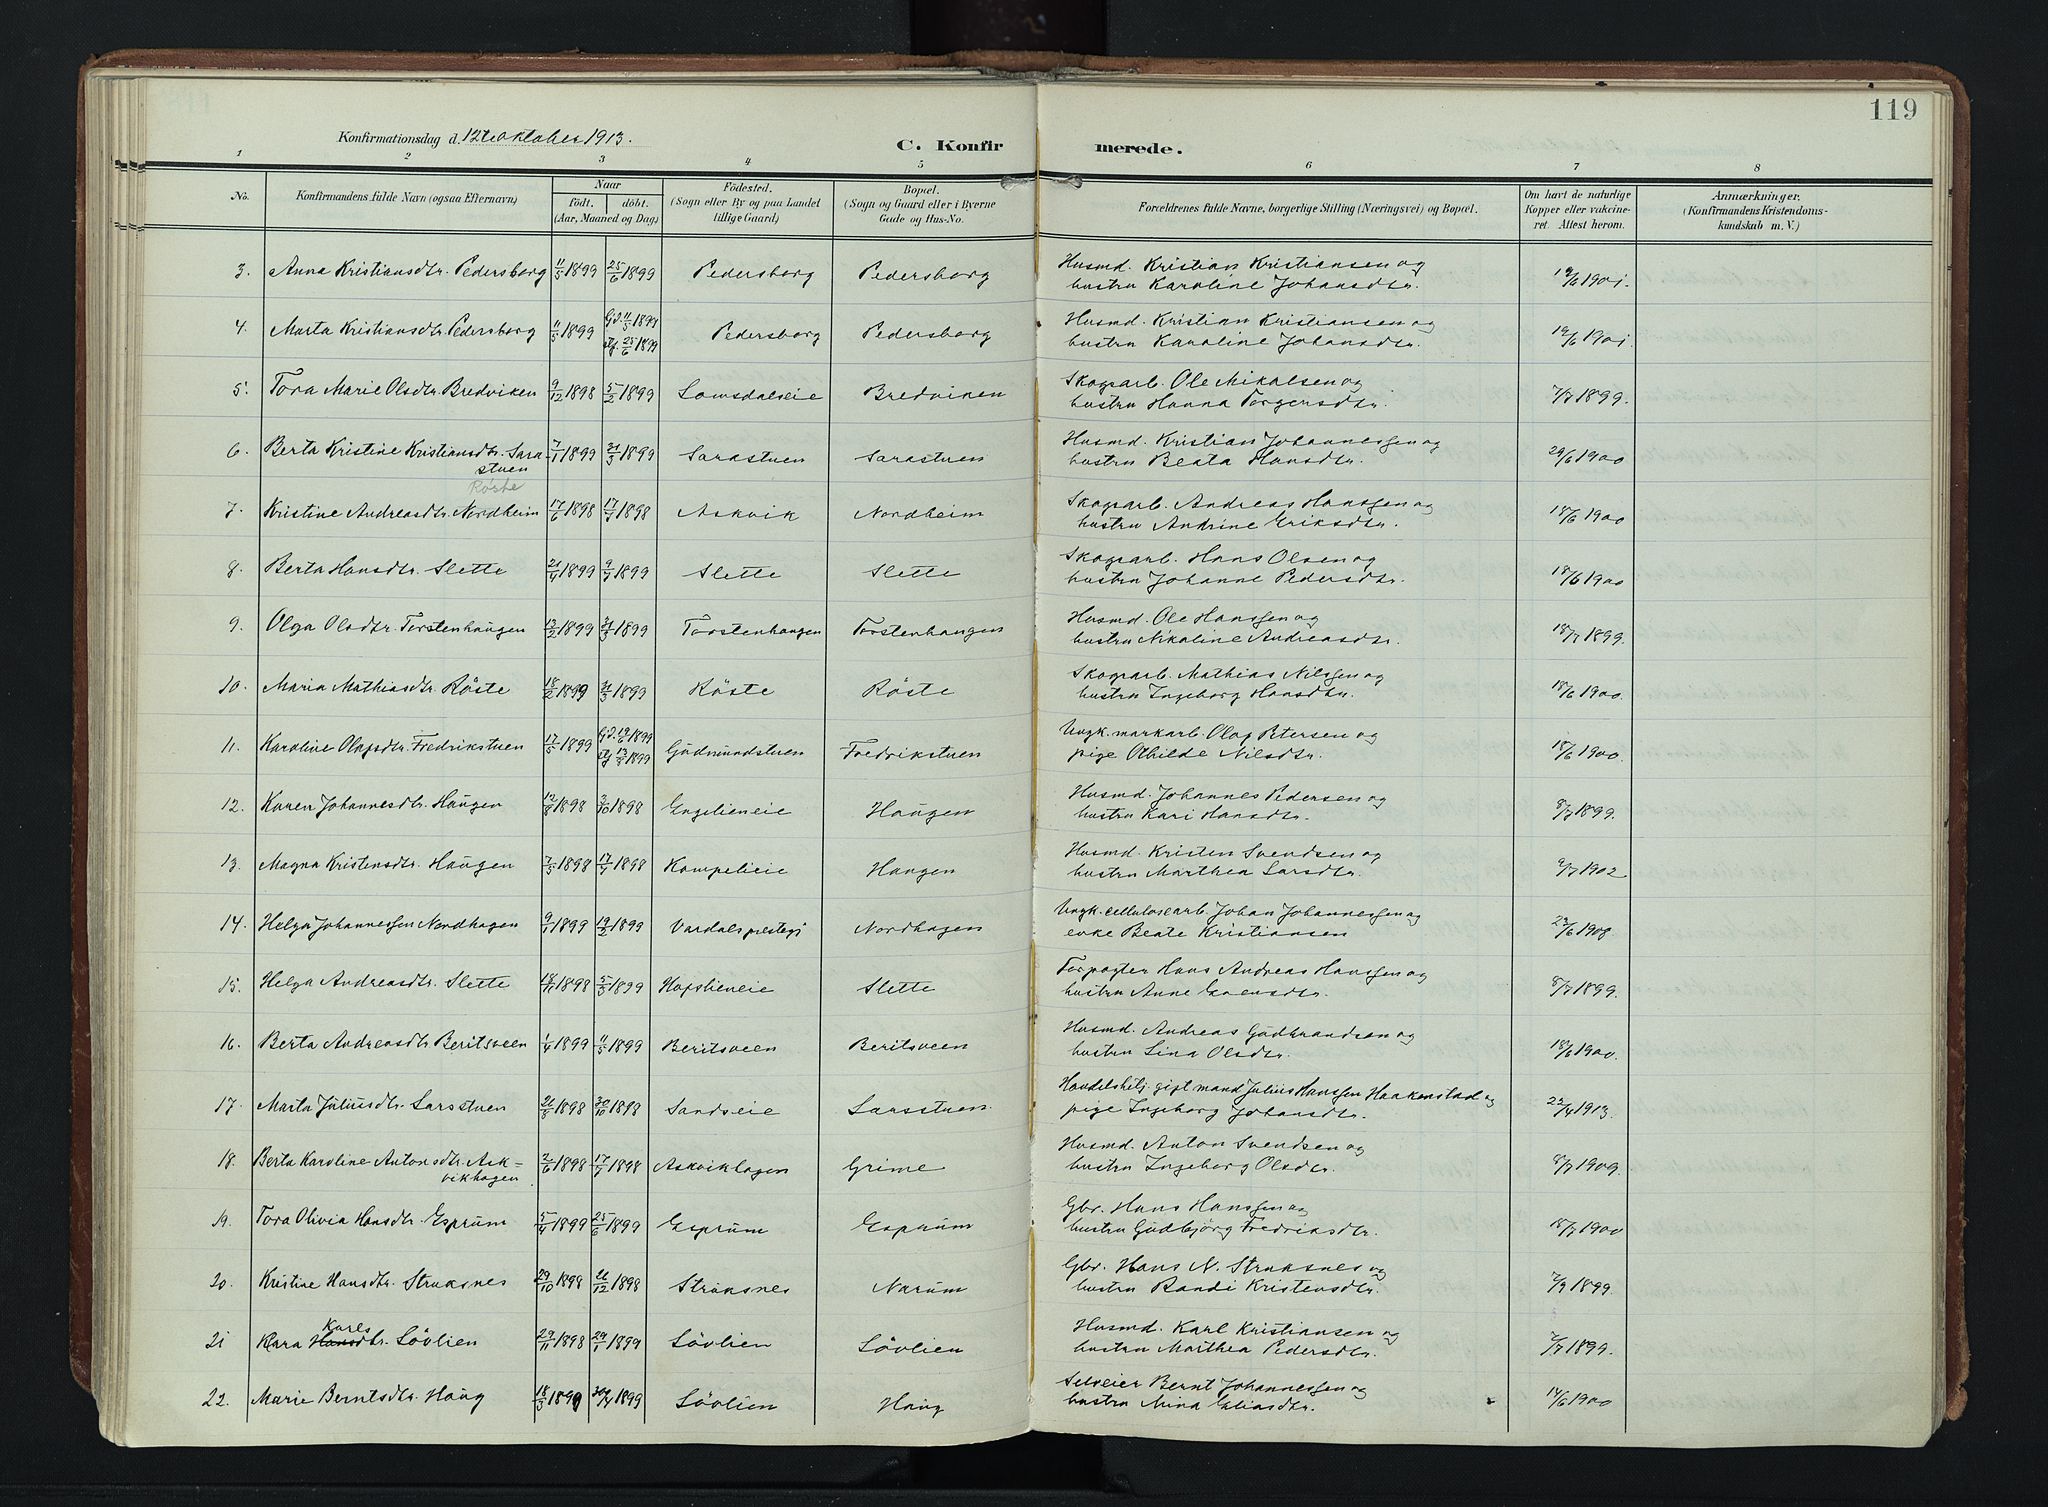 119
Konfirmationsdag d. 12te oktober 1913.
C. Konfirmerede.
1 2 3 4 5 6 7 8
No. Konfirmandens fulde Navn (ogsaa Efternavn) Naar født. døbt. (Aar, Maaned og Dag) Födested. (Sogn eller By og paa Landet tillige Gaard) Bopæl. (Sogn og Gaard eller i Byerne Gade og Hus-No. Forældrenes fulde Navne, borgerlige Stilling (Næringsvei) og Bopæl. Om havt de naturlige Kopper eller vakcineret. Attest herom. Anmærkninger. (Konfirmandens Kristendomskundskab m. V.)
3. Anna Kristiansdtr. Pedersborg 11/5 1899 25/6 1899 Pedersborg Pedersborg Husmd. Kristian Kristiansen og 19/6 1901.
hustru Karoline Johansdtr.
4. Marta Kristiansdtr. Pedersborg 11/5 1899 Gd. 11/5 1899 Pedersborg Pedersborg Husmd. Kristian Kristiansen og 19/6 1901
stf. 25/6 1899 hustru Karoline Johansdtr.
5. Tora Marie Olsdtr. Bredviken 9/12 1898 5/2 1899 Lomsdalseie Bredviken Skogsarb. Ole Mikalsen og 7/7 1899.
hustru Hanna Torgersdtr.
6. Berta Kristine Kristiansdtr. Sara- 7/1 1899 31/3 1899 Sarastuen Sarastuen Husmd. Kristian Johannessen og 29/6 1900
stuen hustru Beata Hansdtr.
Røste
7. Kristine Andreasdtr. Nordheim 17/6 1898 17/7 1898 Askvik Nordheim Skogsarb. Andreas Hanssen og 18/6 1900
hustru Andrine Eriksdtr.
8. Berta Hansdtr. Slette 21/4 1899 9/7 1899 Slette Slette Skogsarb. Hans Olsen og 18/6 1900
hustru Johanne Pedersdtr.
9. Olga Olsdtr. Torstenhaugen 13/2 1899 31/3 1899 Torstenhaugen Torstenhaugen Husmd. Ole Hanssen og 18/7 1899.
hustru Nikaline Andreasdtr.
10. Maria Mathiasdtr. Röste 18/2 1899 31/3 1899 Röste Röste Skogsarb. Mathias Nilssen og 18/6 1900.
hustru Ingeborg Hansdtr.
11. Karoline Olafsdtr. Fredrikstuen 17/5 1899 Gd. 19/6 1899 Gudmundstuen Fredrikstuen Ungk. markarb. Olaf Petersen og 18/6 1900.
1899 pige Othilde Nilsdtr.
12. Karen Johannesdtr. Haugen 12/8 1898 2/10 1898 Engelieneie Haugen Husmd. Johannes Pedersen og 8/7 1899.
hustru Kari Hansdtr.
13. Magna Kristensdtr. Haugen 7/5 1898 17/7 1898 Kampelieie Haugen Husmd. Kristen Svendsen og 9/7 1902
hustru Marthea Larsdtr.
14. Helga Johannessen Nordhagen 9/1 1899 19/2 1899 Vardals prestegj Nordhagen Ungk. cellulosearb. Johan Johannessen og 23/6 1908
enke Beate Kristiansen
15. Helga Andreasdtr. Slette 18/11 1898 5/3 1899 Hofslieneie Slette Forpagter Hans Andreas Hanssen og 8/7 1899.
hustru Anne Evensdtr.
16. Berta Andreasdtr Beritsveen 1/4 1899 11/5 1899 Beritsveen Beritsveen Husmd. Andreas Gudbrandsen og 18/6 1900.
hustru Lina Olsdtr.
17. Marta Juliusdtr. Larsstuen 21/5 1898 30/10 1898 Sandseie Larsstuen. Handelsbetj. gift mand Julius Hanssen Haakenstad og 22/4 1913.
pige Ingeborg Johansdtr.
18. Berta Karoline Antonsdtr. Ask= 2/6 1898 17/7 1898 Askvikhagen Grime Husmd. Anton Svendsen og 8/7 1909.
vikhagen hustru Ingeborg Olsdtr.
19. Tora Olivia Hansdtr. Esprum 5/4 1899 25/6 1899 Esprum Esprum Gbr. Hans Hanssen og 18/7 1900
hustru Gudbjørg Fredriksdtr.
20. Kristine Hansdtr. Struksnes 29/10 1898 26/12 1898 Struksnes Narum Gbr. Hans N. Struksnes og 7/7 1899.
hustru Randi Kristensdtr.
Karls
21 Kara Hansdtr. Lövlien 29/11 1898 29/1 1899 Lövlien Lövlien Husmd. Karl Kristiansen og 7/7 1899.
hustru Marthea Pedersdtr.
22. Marie Berntsdtr. Haug 18/3 1899 30/4 1899 Lövlien Haug Selveier Bernt Johannessen og 14/6 1900
hustru Mina Eliasdtr.